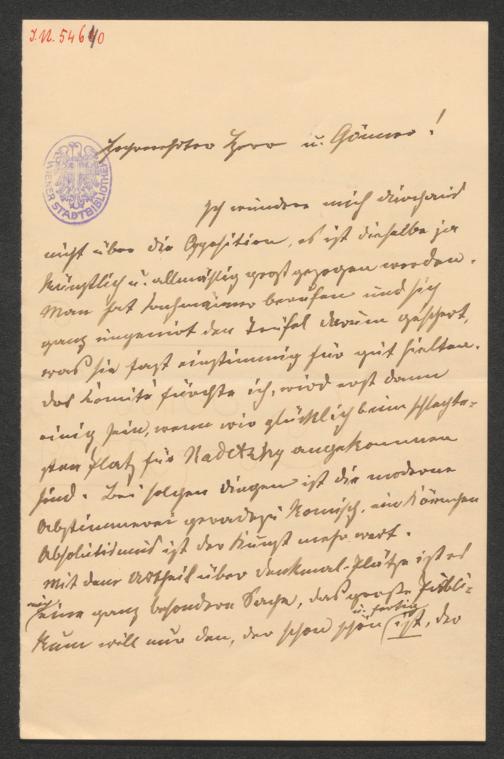 J.N. 54640
WIENER STADTBIBLIOTHEK
Hochverehrter Herr u. Gönner!
Ich wundere mich durchaus
nicht über die Opposition, es ist dieselbe ja
künstlich u. allmählig groß gezogen worden.
Man hat Fachmänner berufen und sich
ganz ungenirt den Teufel darum geschert,
was sie fast einstimmig für gut hielten.
Das Comité fürchte ich, wird erst dann
einig sein, wenn wir glücklich beim schlechte-
sten Platz für Radetzky angekommen
sind. Bei solchen Dingen ist die moderne
Abstimmerei geradezu komisch, ein Körnchen
Absolutismus ist der Kunst mehr wert.
Mit dem Urtheil über Denkmal-Plätze ist es
eine ganz besondere Sache, das große Publi-
kum will nur den, der schon schön u. fertig ist, der